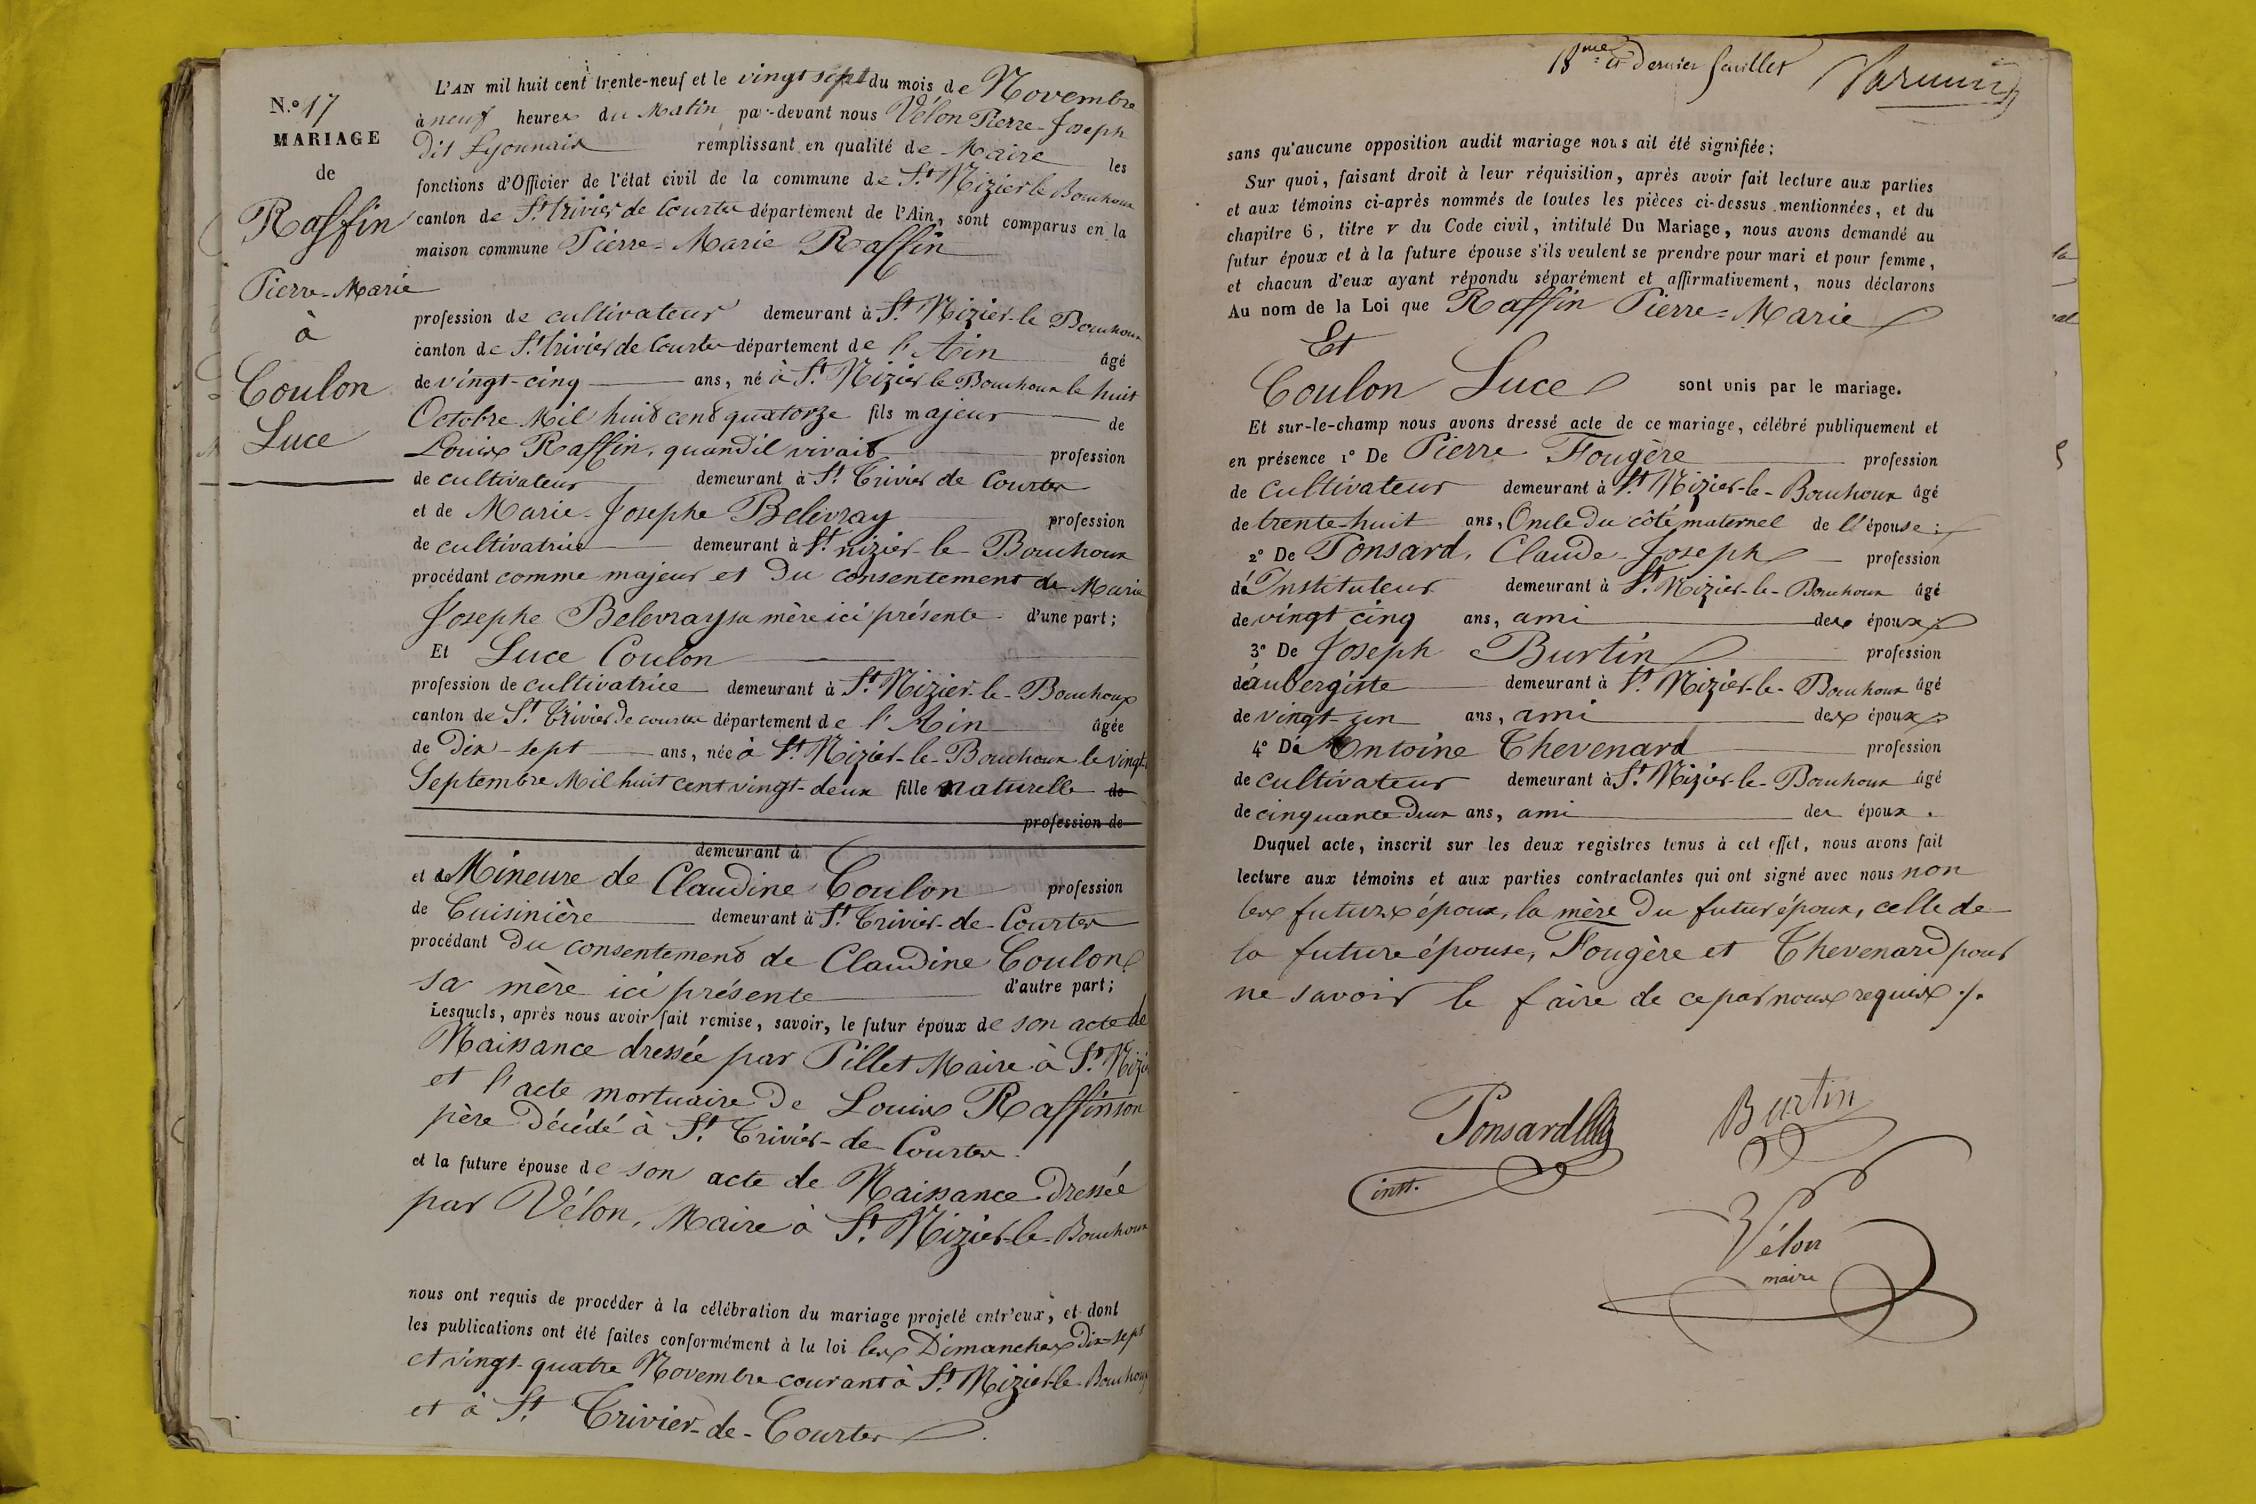 N.º 17
MARIAGE
de
Raffin
Pierre-Marie
à
Coulon
Luce
L'AN mil huit cent trente-neuf et le vingt sept du mois de Novembre
à neuf heures du Matin par-devant nous Vélon Pierre-Joseph
dit Lyonnais remplissant en qualité de Maire les
fonctions d'Officier de l'état civil de la commune de St. Nizier le Bouchoux
canton de St. trivier de Courtes département de l'Ain, sont comparus en la
maison commune Pierre-Marie Raffin
profession de cultivateur demeurant à St. Nizier-le Bouchoux
canton de St. trivier de Courtes département de l'Ain âgé
de vingt-cinq ans, né à St. Nizier le Bouchoux le huit
Octobre Mil huit cent quatorze fils majeur de
Louis Raffin, quand il vivait profession
de cultivateur demeurant à St. Trivier de Courtes
et de Marie-Josephe Belevray profession
de cultivatrice demeurant à St. nizier-le-Bouchoux
procédant comme majeur et du consentement de Marie
Josephe Belevray sa mère ici présente d'une part;
Et Luce Coulon
profession de cultivatrice demeurant à St. Nizier-le-Bouchoux
canton de St. Trivier de courtes département de l'Ain âgée
de dix-sept ans, née à St. Nizier-le-Bouchoux le vingt
Septembre Mil huit cent vingt-deux fille naturelle de
profession de
demeurant à
et de Mineure de Claudine Coulon profession
de Cuisinière demeurant à St. Trivier-de-Courtes
procédant du consentement de Claudine Coulon
sa mère ici présente d'autre part;
Lesquels, après nous avoir fait remise, savoir, le futur époux de son acte de
Naissance dressée par Pillet Maire à St. Nizier
et l'acte mortuaire de Louis Raffin son
père décédé à St. Trivier-de-Courtes.
et la future épouse de son acte de Naissance dressée
par Vélon, Maire à St. Nizier-le-Bouchoux
nous ont requis de procéder à la célébration du mariage projeté entr'eux, et dont
les publications ont été faites conformément à la loi les Dimanches dix-sept
et vingt-quatre Novembre courant à St. Nizier-le-Bouchoux
et à St. Trivier-de-Courtes
18me et Dernier feuillet
sans qu'aucune opposition audit mariage nous ait été signifiée;
Sur quoi, faisant droit à leur réquisition, après avoir fait lecture aux parties
et aux témoins ci-après nommés de toutes les pièces ci-dessus mentionnées, et du
chapitre 6, titre V du Code civil, intitulé Du Mariage, nous avons demandé au
futur époux et à la future épouse s'ils veulent se prendre pour mari et pour femme,
et chacun d'eux ayant répondu séparément et affirmativement, nous déclarons
Au nom de la Loi que Raffin Pierre-Marie
Et
Coulon Luce sont unis par le mariage.
Et sur-le-champ nous avons dressé acte de ce mariage, célébré publiquement et
en présence 1º De Pierre Fougère profession
de cultivateur demeurant à St. Nizier-le-Bouchoux âgé
de trente-huit ans, Oncle du côté maternel de l'épouse;
2º De Ponsard, Claude-Joseph profession
d'Instituteur demeurant à St. Nizier-le-Bouchoux âgé
de vingt cinq ans, ami des époux;
3º De Joseph Burtin profession
d'aubergiste demeurant à St. Nizier-le-Bouchoux âgé
de vingt-un ans, ami des époux;
4º D'Antoine Thevenard profession
de cultivateur demeurant à St. Nizier-le-Bouchoux âgé
de cinquante deux ans, ami des époux.
Duquel acte, inscrit sur les deux registres tenus à cet effet, nous avons fait
lecture aux témoins et aux parties contractantes qui ont signé avec nous non
les futurs époux, la mère du futur époux, celle de
la future épouse, Fougère et Thevenard pour
ne savoir le faire de ce par nous requis ./.
Ponsard
inst.
Burtin
Vélon
maire